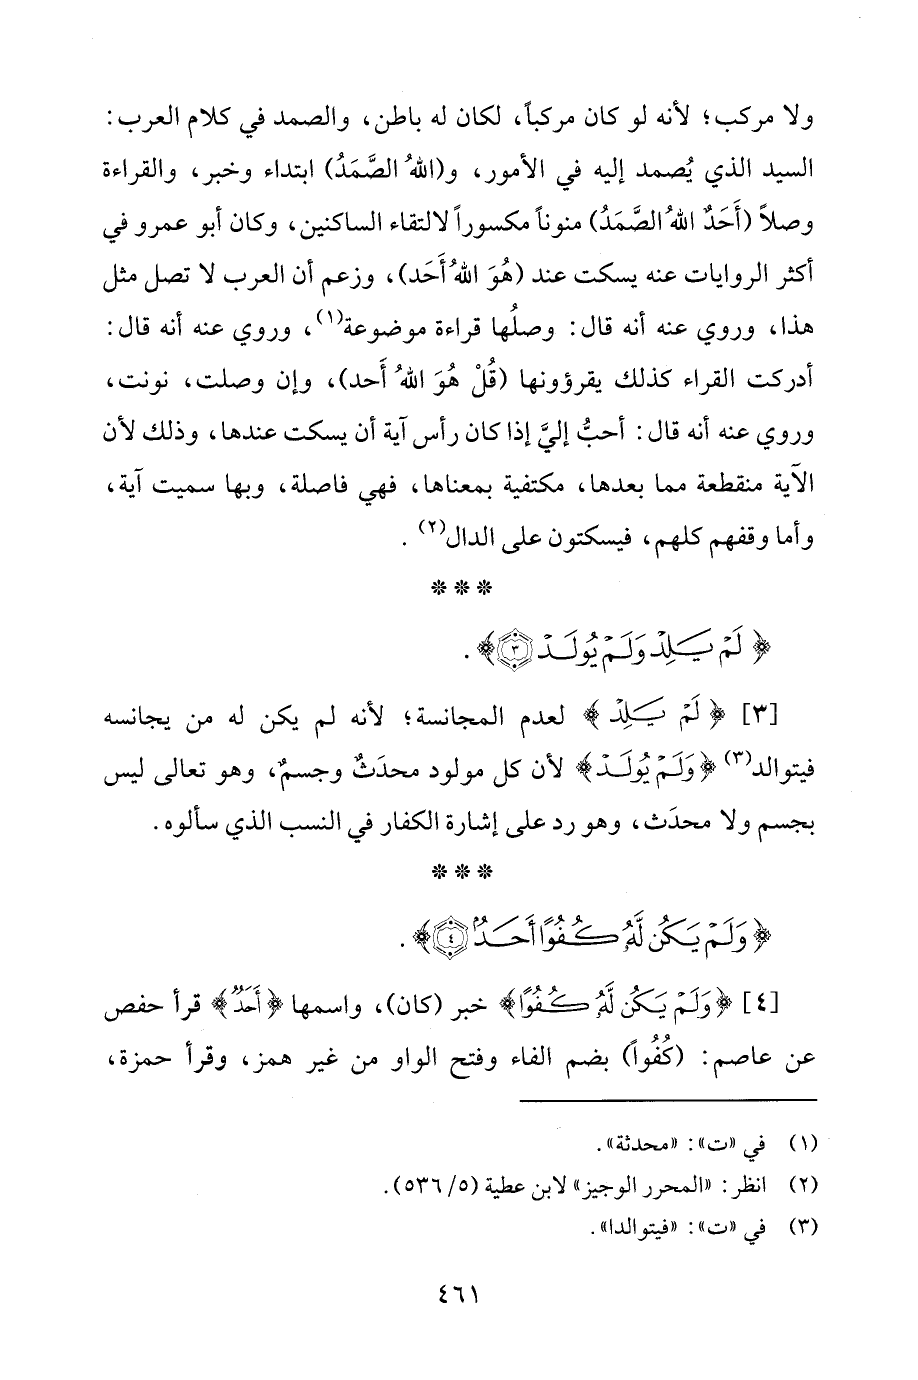 ولا مركب؛ لأنه لو كان مركباً، لكان له باطن، والصمد في كلام العرب:
السيد الذي يُصمد إليه في الأمور، و(اللهُ الصَّمَدُ) ابتداء وخبر، والقراءة
وصلاً (أَحَدٌ اللهُ الصَّمَدُ) منوناً مكسوراً لالتقاء الساكنين، وكان أبو عمرو في
أكثر الروايات عنه يسكت عند (هُوَ اللهُ أَحَد)، وزعم أن العرب لا تصل مثل
هذا، وروي عنه أنه قال: وصلُها قراءة موضوعة(١)، وروي عنه أنه قال:
أدركت القراء كذلك يقرؤونها (قُلْ هُوَ اللهُ أَحد)، وإن وصلت، نونت،
وروي عنه أنه قال: أحبُّ إليَّ إذا كان رأس آية أن يسكت عندها، وذلك لأن
الآية منقطعة مما بعدها، مكتفية بمعناها، فهي فاصلة، وبها سميت آية،
وأما وقفهم كلهم، فيسكتون على الدال(٢).
* * *
﴿لَمْ يَلِدْ وَلَمْ يُولَدْ ٣﴾.
[٣] ﴿لَمْ يَلِدْ﴾ لعدم المجانسة؛ لأنه لم يكن له من يجانسه
فيتوالد(٣) ﴿وَلَمْ يُولَدْ﴾ لأن كل مولود محدَثٌ وجسمٌ، وهو تعالى ليس
بجسم ولا محدَث، وهو رد على إشارة الكفار في النسب الذي سألوه.
* * *
﴿وَلَمْ يَكُن لَّهُ كُفُوًا أَحَدٌ ٤﴾.
[٤] ﴿وَلَمْ يَكُن لَّهُ كُفُوًا﴾ خبر (كان)، واسمها ﴿أَحَدٌ﴾ قرأ حفص
عن عاصم: (كُفُواً) بضم الفاء وفتح الواو من غير همز، وقرأ حمزة،
(١) في «ت»: «محدثة».
(٢) انظر: «المحرر الوجيز» لابن عطية (٥/ ٥٣٦).
(٣) في «ت»: «فيتوالدا».
٤٦١